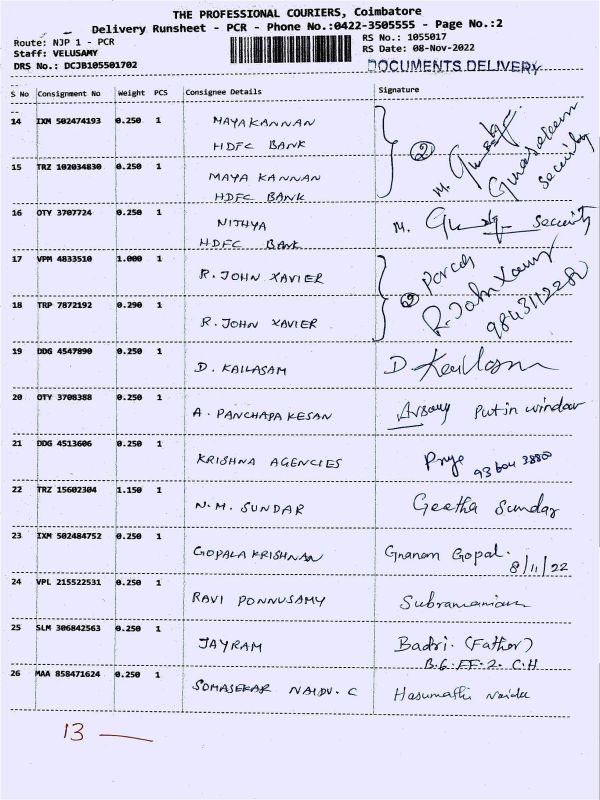 THE PROFESSIONAL COURIERS, Coimbatore
Delivery Runsheet - PCR - Phone No.:0422-3505555 - Page No.:2
Route: NJP 1 - PCR
RS No.: 1055017
Staff: VELUSAMY
RS Date: 08-Nov-2022
DRS No.: DCJB105501702
DOCUMENTS DELIVERY
S No Consignment No Weight PCS Consignee Details Signature
14 IXM 502474193 0.250 1 MAYAKANNAN
HDFC BANK
② M. Gunasekaran security
15 TRZ 102034830 0.250 1 MAYA KANNAN
HDFC BANK
16 OTY 3707724 0.250 1 NITHYA M. security
HDFC BANK
17 VPM 4833510 1.000 1 R. JOHN XAVIER
② Parcel
R. John Xavier
18 TRP 7872192 0.290 1 R. JOHN XAVIER
19 DDG 4547890 0.250 1 D. KAILASAM D Kailasam
20 OTY 3708388 0.250 1 A. PANCHAPAKESAN Put in window
21 DDG 4513606 0.250 1 KRISHNA AGENCIES
22 TRZ 15602304 1.150 1 N.M. SUNDAR Geetha Sundar
23 IXM 502484752 0.250 1 GOPALA KRISHNAN Gnanam Gopal.
8/11/22
24 VPL 215522531 0.250 1 RAVI PONNUSAMY Subramaniam
25 SLM 306842563 0.250 1 JAYRAM Badri. (Father)
B.6.FF.2. C.H
26 MAA 858471624 0.250 1 SOMASEKAR NAIDU. C Hasumathi Naidu
13 —